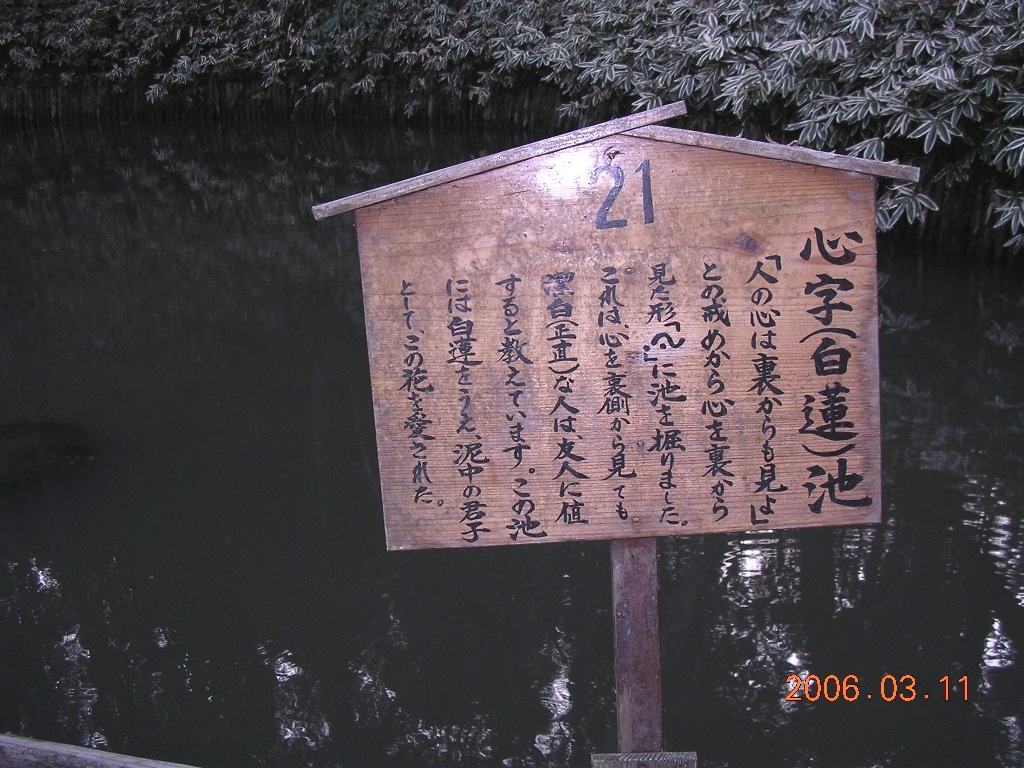 21
心字(白蓮)池
「人の心は裏からも見よ」
との戒めから心を裏から
見た形「」に池を掘りました。
これは、心を裏側から見ても
潔白(正直)な人は、友人に値
すると教えています。この池
には白蓮をうえ、泥中の君子
として、この花を愛された。
2006.03.11